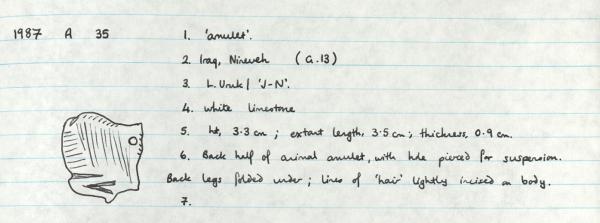 1987 A 35 1. 'amulet'.
2. Iraq, Nineveh (G.13)
3. L. Uruk / 'J-N'.
4. white limestone
5. ht, 3.3 cm ; extant length, 3.5 cm ; thickness, 0.9 cm.
6. Back half of animal amulet, with hole pierced for suspension.
Back legs folded under ; lines of 'hair' lightly incised on body.
7.